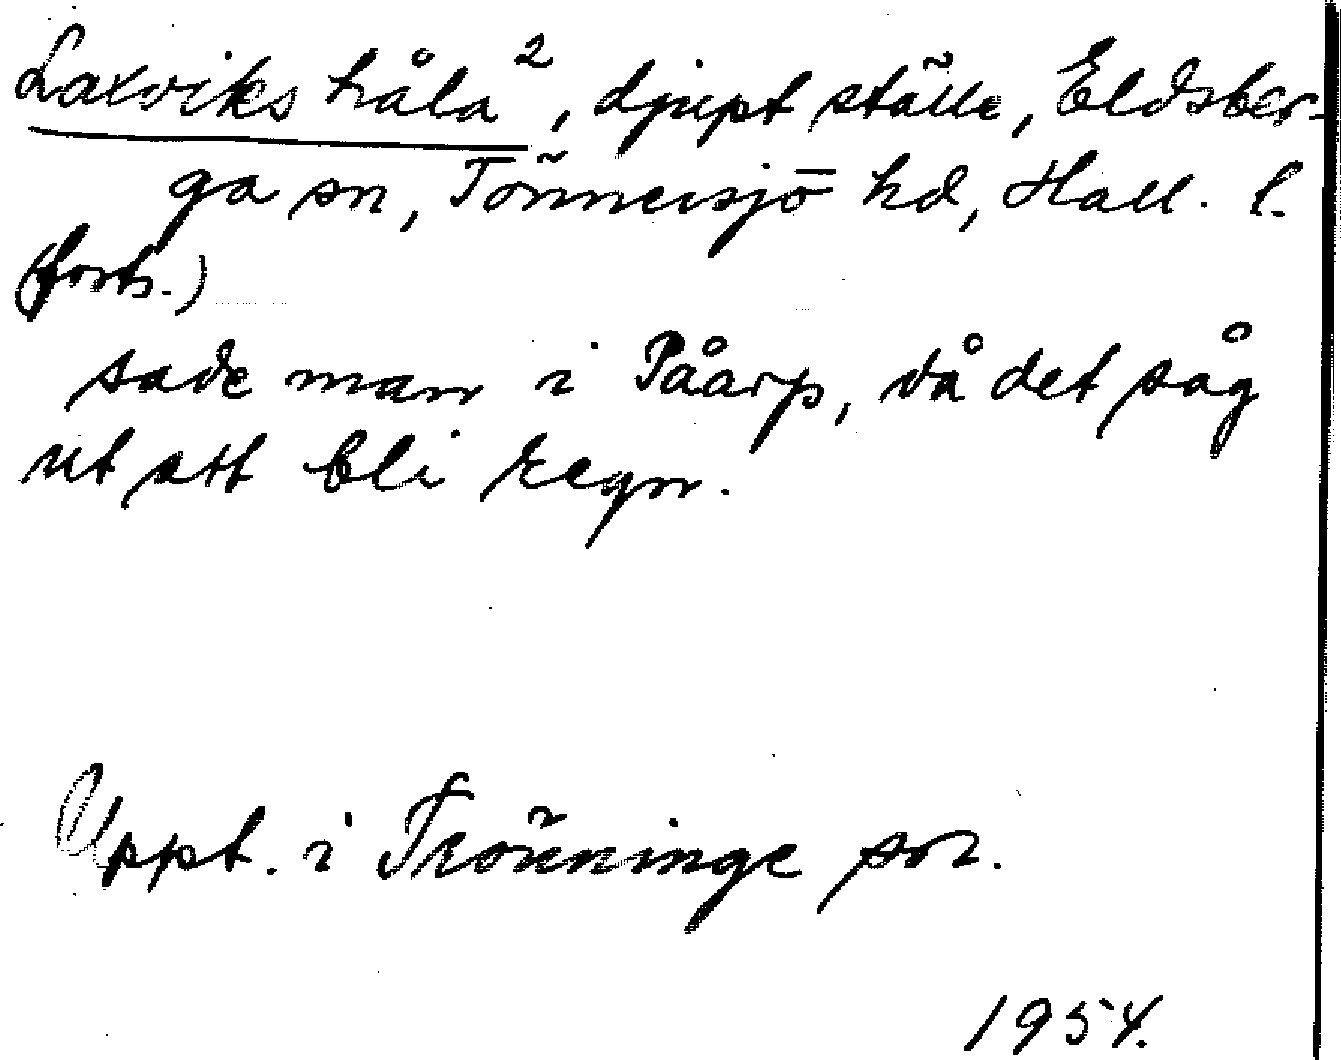 Laxviks håla², djupt ställe, Eldsber-
ga sn, Tönnersjö hd, Hall. l.
(forts.)
sade man i Påarp, då det såg
ut att bli regn.
Uppt. i Trönninge sn.
1954.